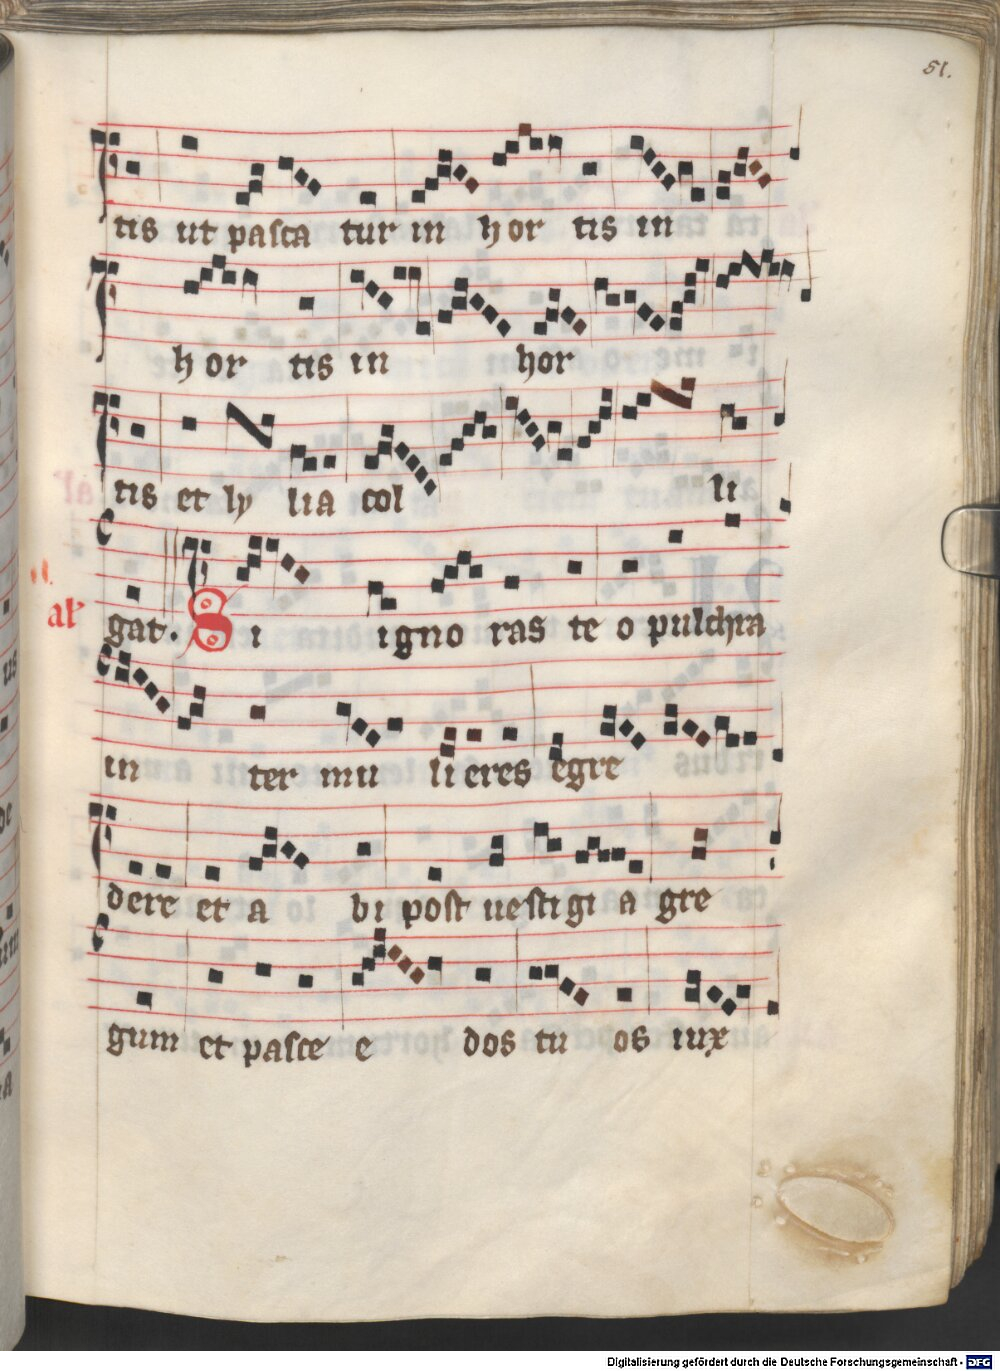 51.
tis ut pasca tur in hor tis in
hor tis in hor
tis et ly lia col li
gat. Si igno ras te o pulchra
in ter mu li eres egre
dere et a bi post uestigi a gre
gum et pasce e dos tu os iux
Digitalisierung gefördert durch die Deutsche Forschungsgemeinschaft - DFG